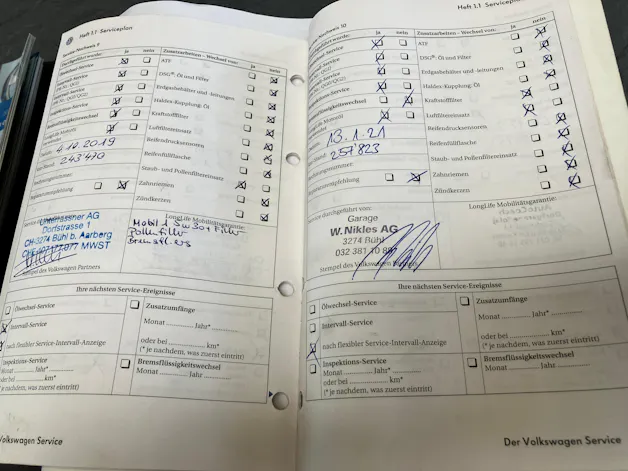 Heft 1.1 Serviceplan
Service-Nachweis 9
Durchgeführt wurde: ja nein
Ölwechsel-Service
Intervall-Service
Inspektions-Service
Bremsflüssigkeitswechsel
LongLife Motoröl
4.10.2019
243'470
Zusatzarbeiten – Wechsel von: ja nein
ATF
DSG®: Öl und Filter
Erdgasbehälter und -leitungen
Haldex-Kupplung: Öl
Kraftstofffilter
Luftfiltereinsatz
Reifendruckssensoren
Reifenfüllflasche
Staub- und Pollenfiltereinsatz
Zahnriemen
Zündkerzen
LongLife Mobilitätsgarantie:
Dorfstrasse 1
CH-3274 Bühl b. Aarberg
MWST
Stempel des Volkswagen Partners
Pollenfilter
Ihre nächsten Service-Ereignisse
Ölwechsel-Service
Intervall-Service
nach flexibler Service-Intervall-Anzeige
Inspektions-Service
oder bei km*
(* je nachdem, was zuerst eintritt)
Zusatzumfänge
Monat Jahr*
oder bei km*
(* je nachdem, was zuerst eintritt)
Bremsflüssigkeitswechsel
Monat Jahr
Volkswagen Service
Heft 1.1 Serviceplan
Service-Nachweis 10
ja nein
13.1.21
257'823
Zusatzarbeiten – Wechsel von: ja nein
ATF
DSG®: Öl und Filter
Erdgasbehälter und -leitungen
Haldex-Kupplung: Öl
Kraftstofffilter
Luftfiltereinsatz
Reifendruckssensoren
Reifenfüllflasche
Staub- und Pollenfiltereinsatz
Zahnriemen
Zündkerzen
LongLife Mobilitätsgarantie:
Service durchgeführt von:
Garage
W. Nikles AG
3274 Bühl
032 381
Stempel des Volkswagen
Ihre nächsten Service-Ereignisse
Ölwechsel-Service
Intervall-Service
nach flexibler Service-Intervall-Anzeige
Inspektions-Service
Monat Jahr*
oder bei km*
(* je nachdem, was zuerst eintritt)
Zusatzumfänge
Monat Jahr*
oder bei km*
(* je nachdem, was zuerst eintritt)
Bremsflüssigkeitswechsel
Monat Jahr
Der Volkswagen Service